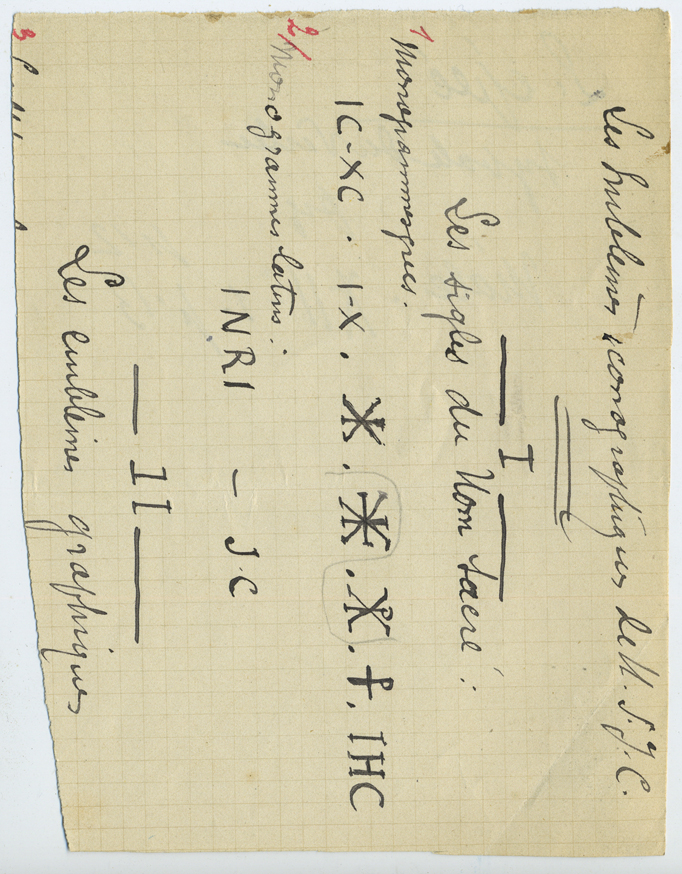 Les Emblèmes iconographiques de N. S. J. C.
I
Les sigles du Nom sacré :
1 Monogrammes grecs.
IC-XC . I-X . Ж . Ж . ☧ . ⳨ . IHC
2/ Monogrammes latins :
INRI – J.C
II
Les emblèmes graphiques
3